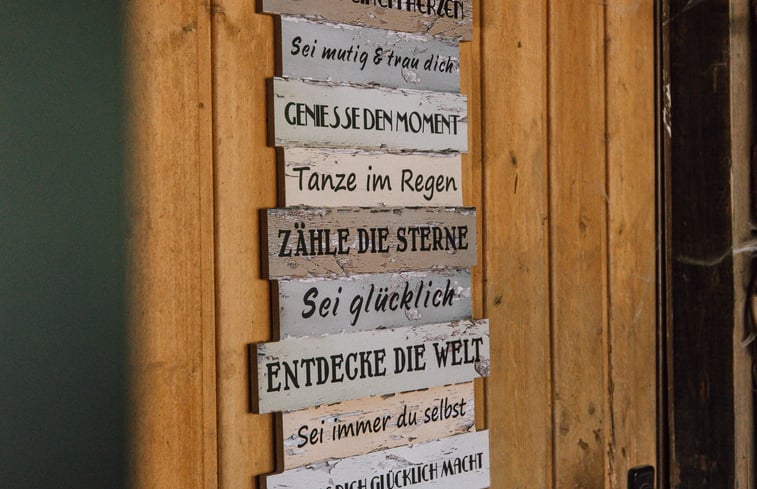 HERZEN
Sei mutig & trau dich
GENIESSE DEN MOMENT
Tanze im Regen
ZÄHLE DIE STERNE
Sei glücklich
ENTDECKE DIE WELT
Sei immer du selbst
DICH GLÜCKLICH MACHT